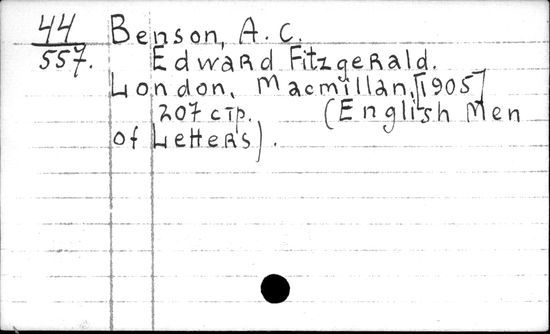 44 Benson, A. C.
557. Edward Fitzgerald.
London, Macmillan, [1905]
207 стр. (English Men
of Letters).